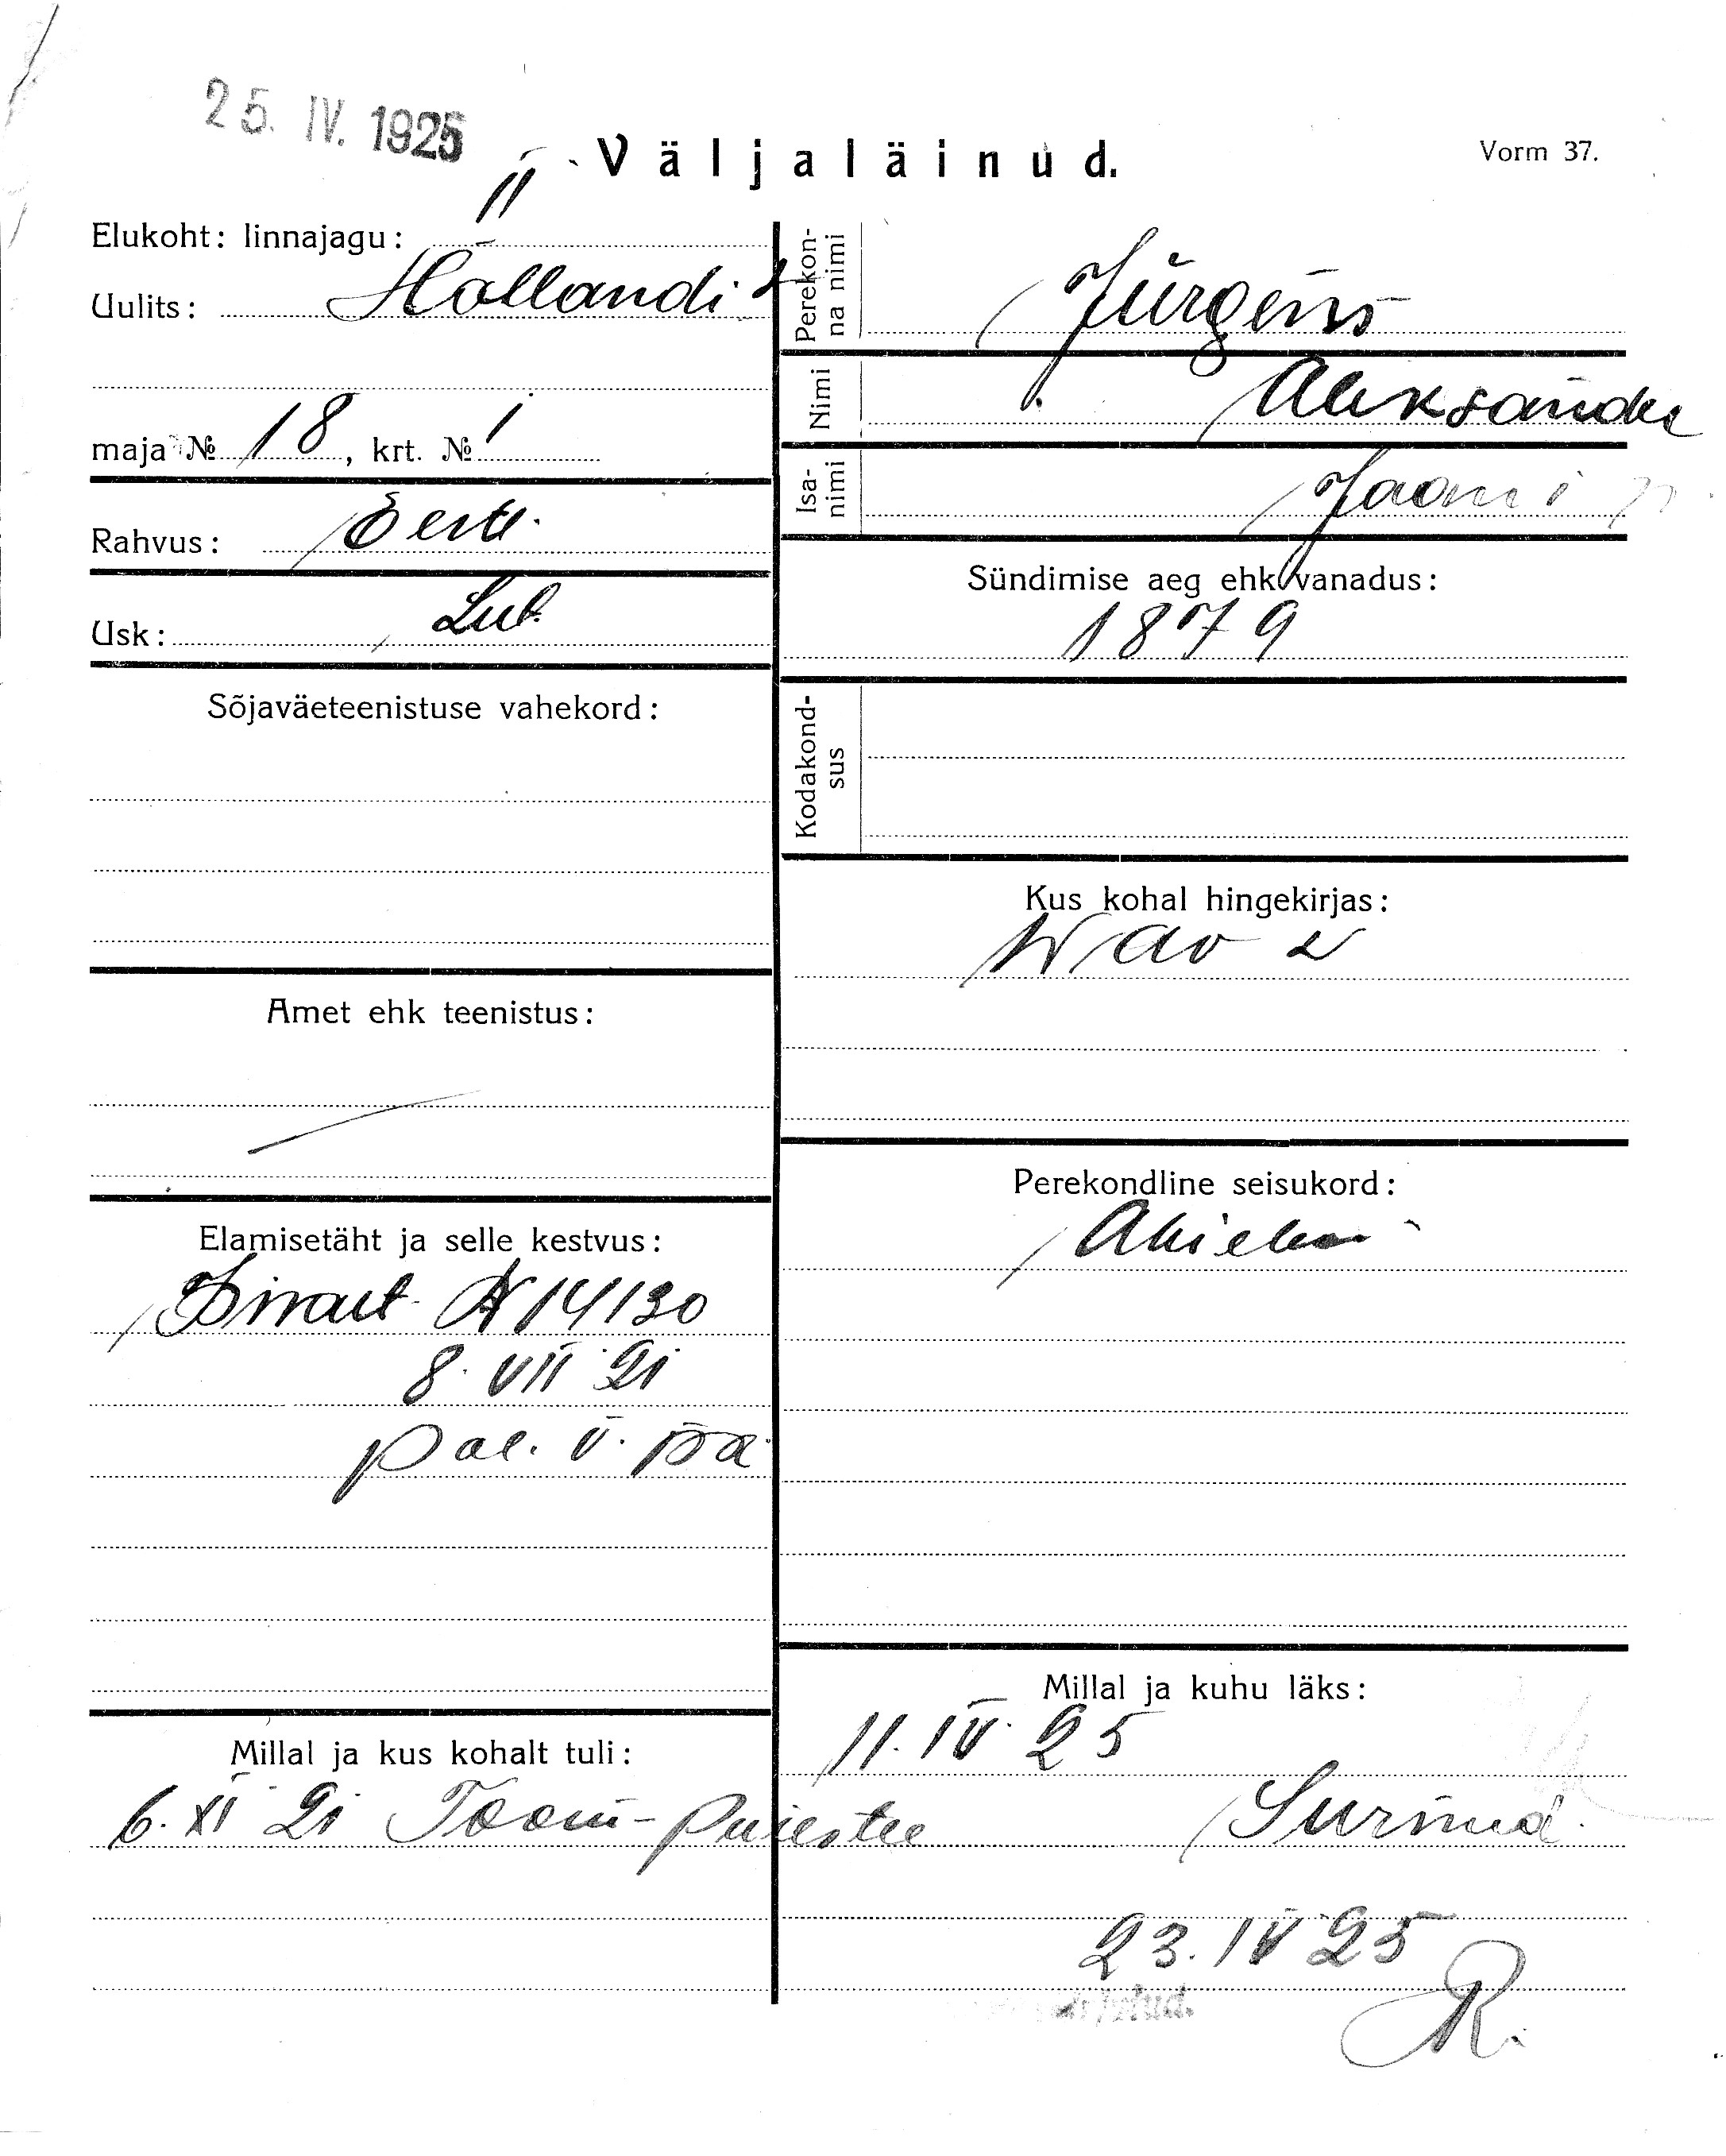 25. IV. 1925
Väljaläinud.
Vorm 37.
Elukoht: linnajagu: II
Uulits: Hollandi
maja № 18, krt. № 1
Rahvus: Eesti
Usk: Lut.
Sõjaväeteenistuse vahekord:
Amet ehk teenistus:
Elamisetäht ja selle kestvus:
N 14130
8. VII 21
pol.
Millal ja kus kohalt tuli:
6. XI 21 Toom-Puiestee
Perekonna nimi Jürgens
Nimi Aleksander
Isanimi Jaani p.
Sündimise aeg ehk vanadus:
1879
Kodakondsus
Kus kohal hingekirjas:
Perekondline seisukord:
Abielus
Millal ja kuhu läks:
11. IV 25
Surnud.
23. IV 25
R.